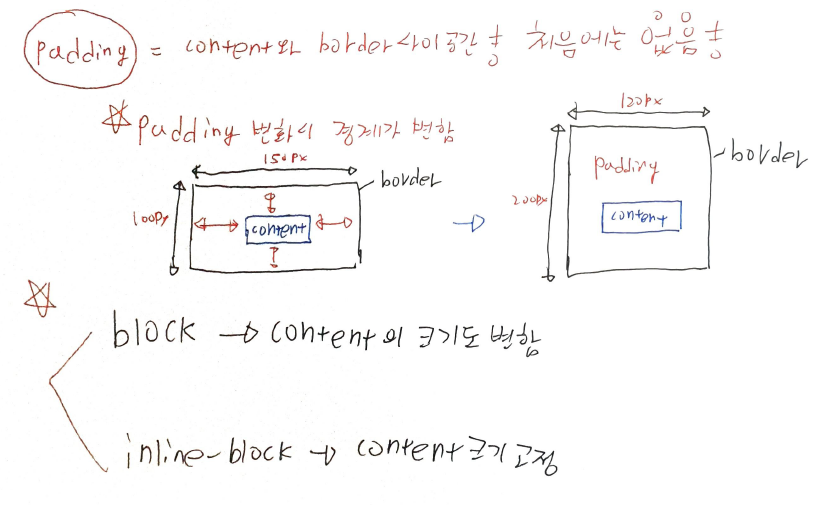 padding = content와 border사이 공간 흥 처음에는 없음 흥
padding 변화시 경계가 변함
150px
border
100px
content
120px
border
200px
padding
content
block → content의 크기도 변함
inline-block → content크기 고정